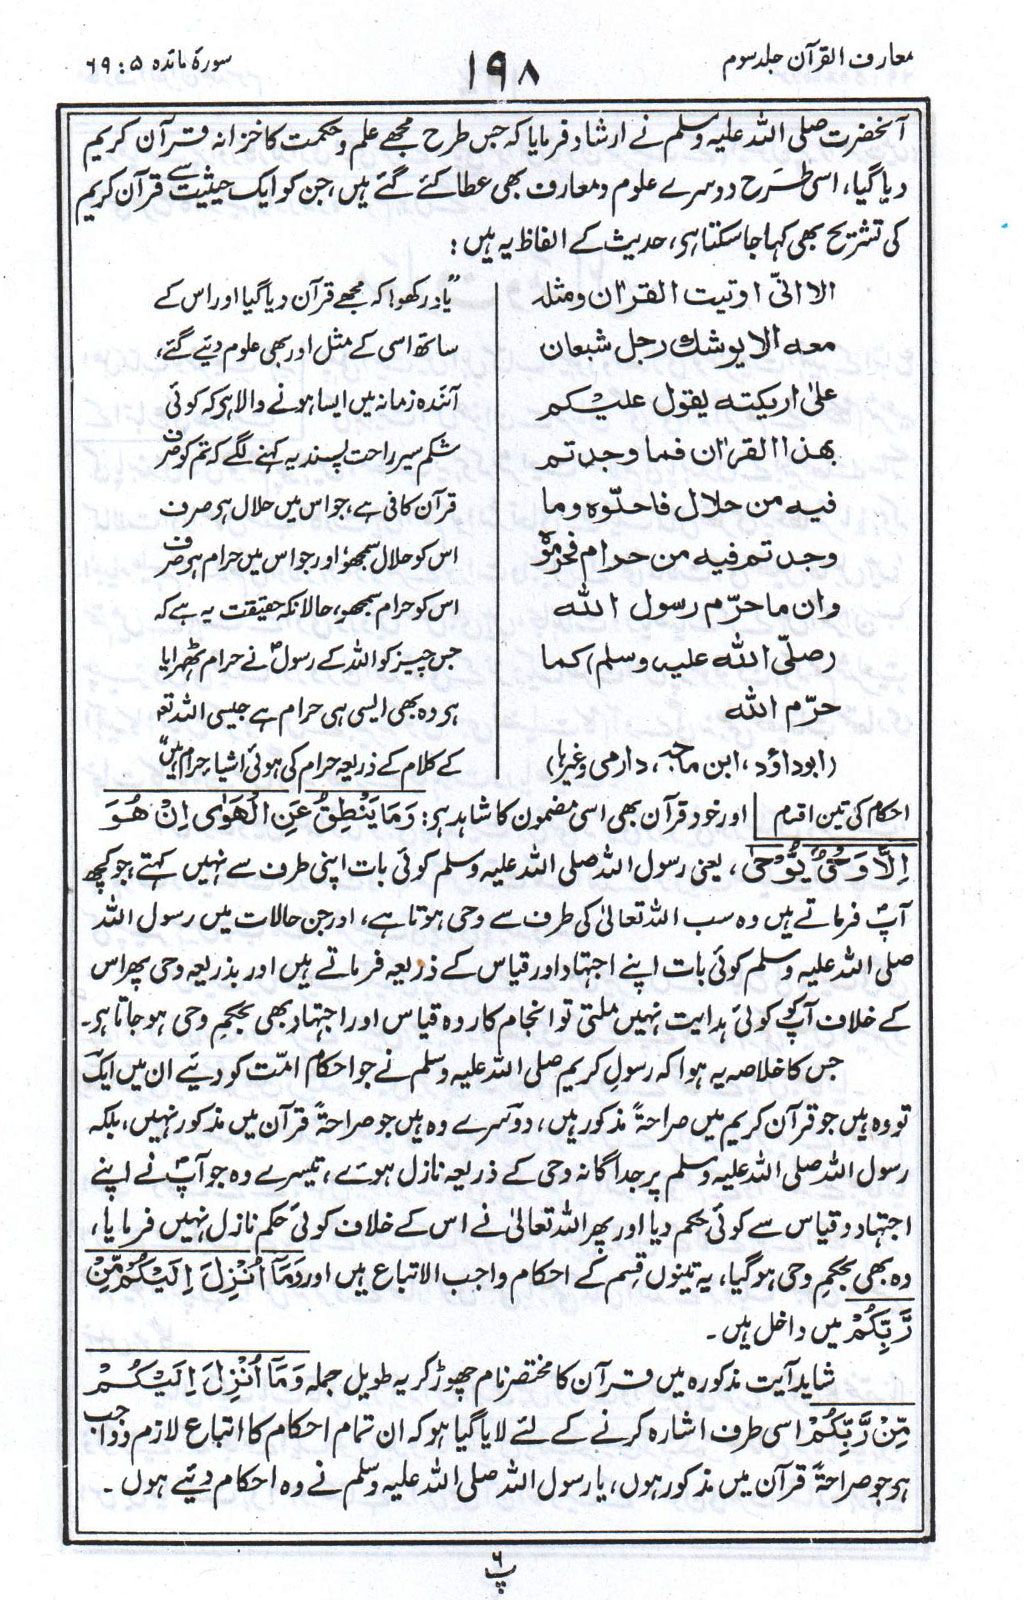 معارف القرآن جلد سوم
۱۹۸
سورۂ مائدہ ۵ : ۶۹
آنحضرت صلی اللہ علیہ وسلم نے ارشاد فرمایا کہ جس طرح مجھے علم و حکمت کا خزانہ قرآن کریم
دیا گیا، اسی طرح دوسرے علوم و معارف بھی عطا کئے گئے ہیں، جن کو ایک حیثیت سے قرآن کریم
کی تشریح بھی کہا جا سکتا ہے، حدیث کے الفاظ یہ ہیں :
الا انّی اوتیت القراٰن ومثلہ
معہ الا یوشك رجل شبعان
علیٰ اریکتہ یقول علیکم
بھذا القراٰن فما وجدتم
فیہ من حلال فاحلّوہ وما
وجدتم فیہ من حرام فحرموہ
وان ما حرّم رسول اللہ
(صلّی اللہ علیہ وسلم) کما
حرّم اللہ
(ابوداؤد، ابن ماجہ، دارمی وغیرہا)
"یاد رکھو! کہ مجھے قرآن دیا گیا اور اس کے
ساتھ اسی کے مثل اور بھی علوم دیئے گئے،
آئندہ زمانہ میں ایسا ہونے والا ہے کہ کوئی
شکم سیر راحت پسند یہ کہنے لگے کہ تم کو صرف
قرآن کافی ہے، جو اس میں حلال ہے صرف
اس کو حلال سمجھو، اور جو اس میں حرام ہے صرف
اس کو حرام سمجھو، حالانکہ حقیقت یہ ہے کہ
جس چیز کو اللہ کے رسولؐ نے حرام ٹھہرایا
ہے وہ بھی ایسی ہی حرام ہے جیسی اللہ تعالیٰ
کے کلام کے ذریعہ حرام کی ہوئی اشیاء حرام ہیں"
احکام کی تین اقسام اور خود قرآن بھی اسی مضمون کا شاہد ہے : وَمَا یَنْطِقُ عَنِ الْھَوٰی اِنْ ھُوَ
اِلَّا وَحْیٌ یُّوْحٰی، یعنی رسول اللہ صلی اللہ علیہ وسلم کوئی بات اپنی طرف سے نہیں کہتے، جو کچھ
آپؐ فرماتے ہیں وہ سب اللہ تعالیٰ کی طرف سے وحی ہوتا ہے، اور جن حالات میں رسول اللہ
صلی اللہ علیہ وسلم کوئی بات اپنے اجتہاد اور قیاس کے ذریعہ فرماتے ہیں اور بذریعہ وحی پھر اس
کے خلاف آپؐ کو کوئی ہدایت نہیں ملتی تو انجام کار وہ قیاس اور اجتہاد بھی بحکم وحی ہو جاتا ہے۔
جس کا خلاصہ یہ ہوا کہ رسول کریم صلی اللہ علیہ وسلم نے جو احکام امّت کو دیئے ان میں ایک
تو وہ ہیں جو قرآن کریم میں صراحۃً مذکور ہیں، دوسرے وہ ہیں جو صراحۃً قرآن میں مذکور نہیں، بلکہ
رسول اللہ صلی اللہ علیہ وسلم پر جداگانہ وحی کے ذریعہ نازل ہوئے، تیسرے وہ جو آپؐ نے اپنے
اجتہاد و قیاس سے کوئی حکم دیا اور پھر اللہ تعالیٰ نے اس کے خلاف کوئی حکم نازل نہیں فرمایا،
وہ بھی بحکم وحی ہو گیا، یہ تینوں قسم کے احکام واجب الاتباع ہیں اور وَمَآ اُنْزِلَ اِلَیْکُمْ مِّنْ
رَّبِّکُمْ میں داخل ہیں۔
شاید آیت مذکورہ میں قرآن کا مختصر نام چھوڑ کر یہ طویل جملہ وَمَآ اُنْزِلَ اِلَیْکُمْ
مِّنْ رَّبِّکُمْ اسی طرف اشارہ کرنے کے لئے لایا گیا ہو کہ ان تمام احکام کا اتباع لازم و واجب
ہے جو صراحۃً قرآن میں مذکور ہوں، یا رسول اللہ صلی اللہ علیہ وسلم نے وہ احکام دیئے ہوں۔
پ ۶